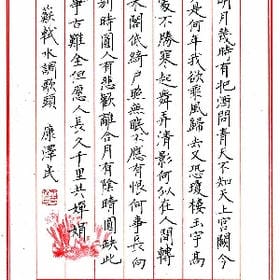 明月幾時有把酒問青天不知天上宮闕今
夕是何年我欲乘風歸去又恐瓊樓玉宇高
處不勝寒起舞弄清影何似在人間轉
朱閣低綺戶照無眠不應有恨何事長向
別時圓人有悲歡離合月有陰晴圓缺此
事古難全但願人長久千里共嬋娟
蘇軾水調歌頭 康澤民